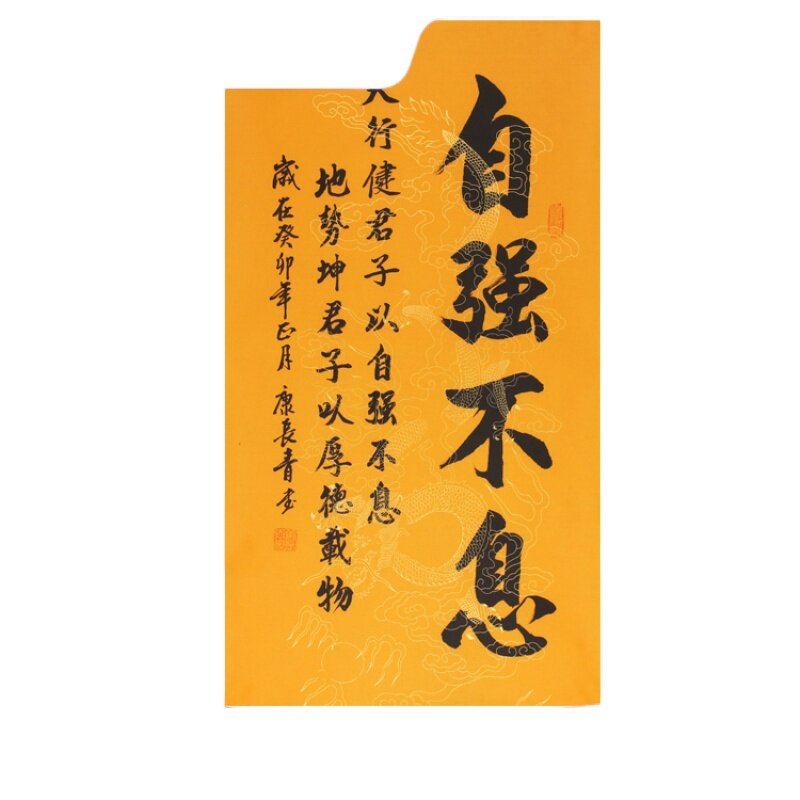 自强不息
行健君子以自强不息
地势坤君子以厚德載物
歲在癸卯年正月康長青书